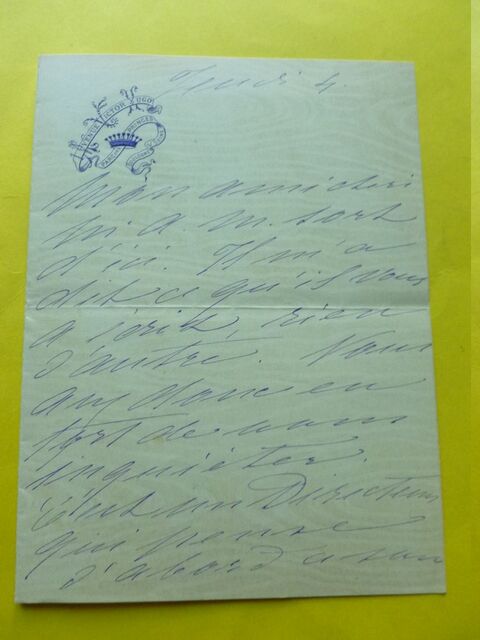 Jeudi 4.
AVENUE VICTOR HUGO
Mon ami chéri
M. a. m. sort
d'ici. Il m'a
dit ce qu'il vous
a écrit, rien
d'autre. Vous
avez donc en
tort de vous
inquiéter.
C'est un Directeur
qui pense
d'abord à son